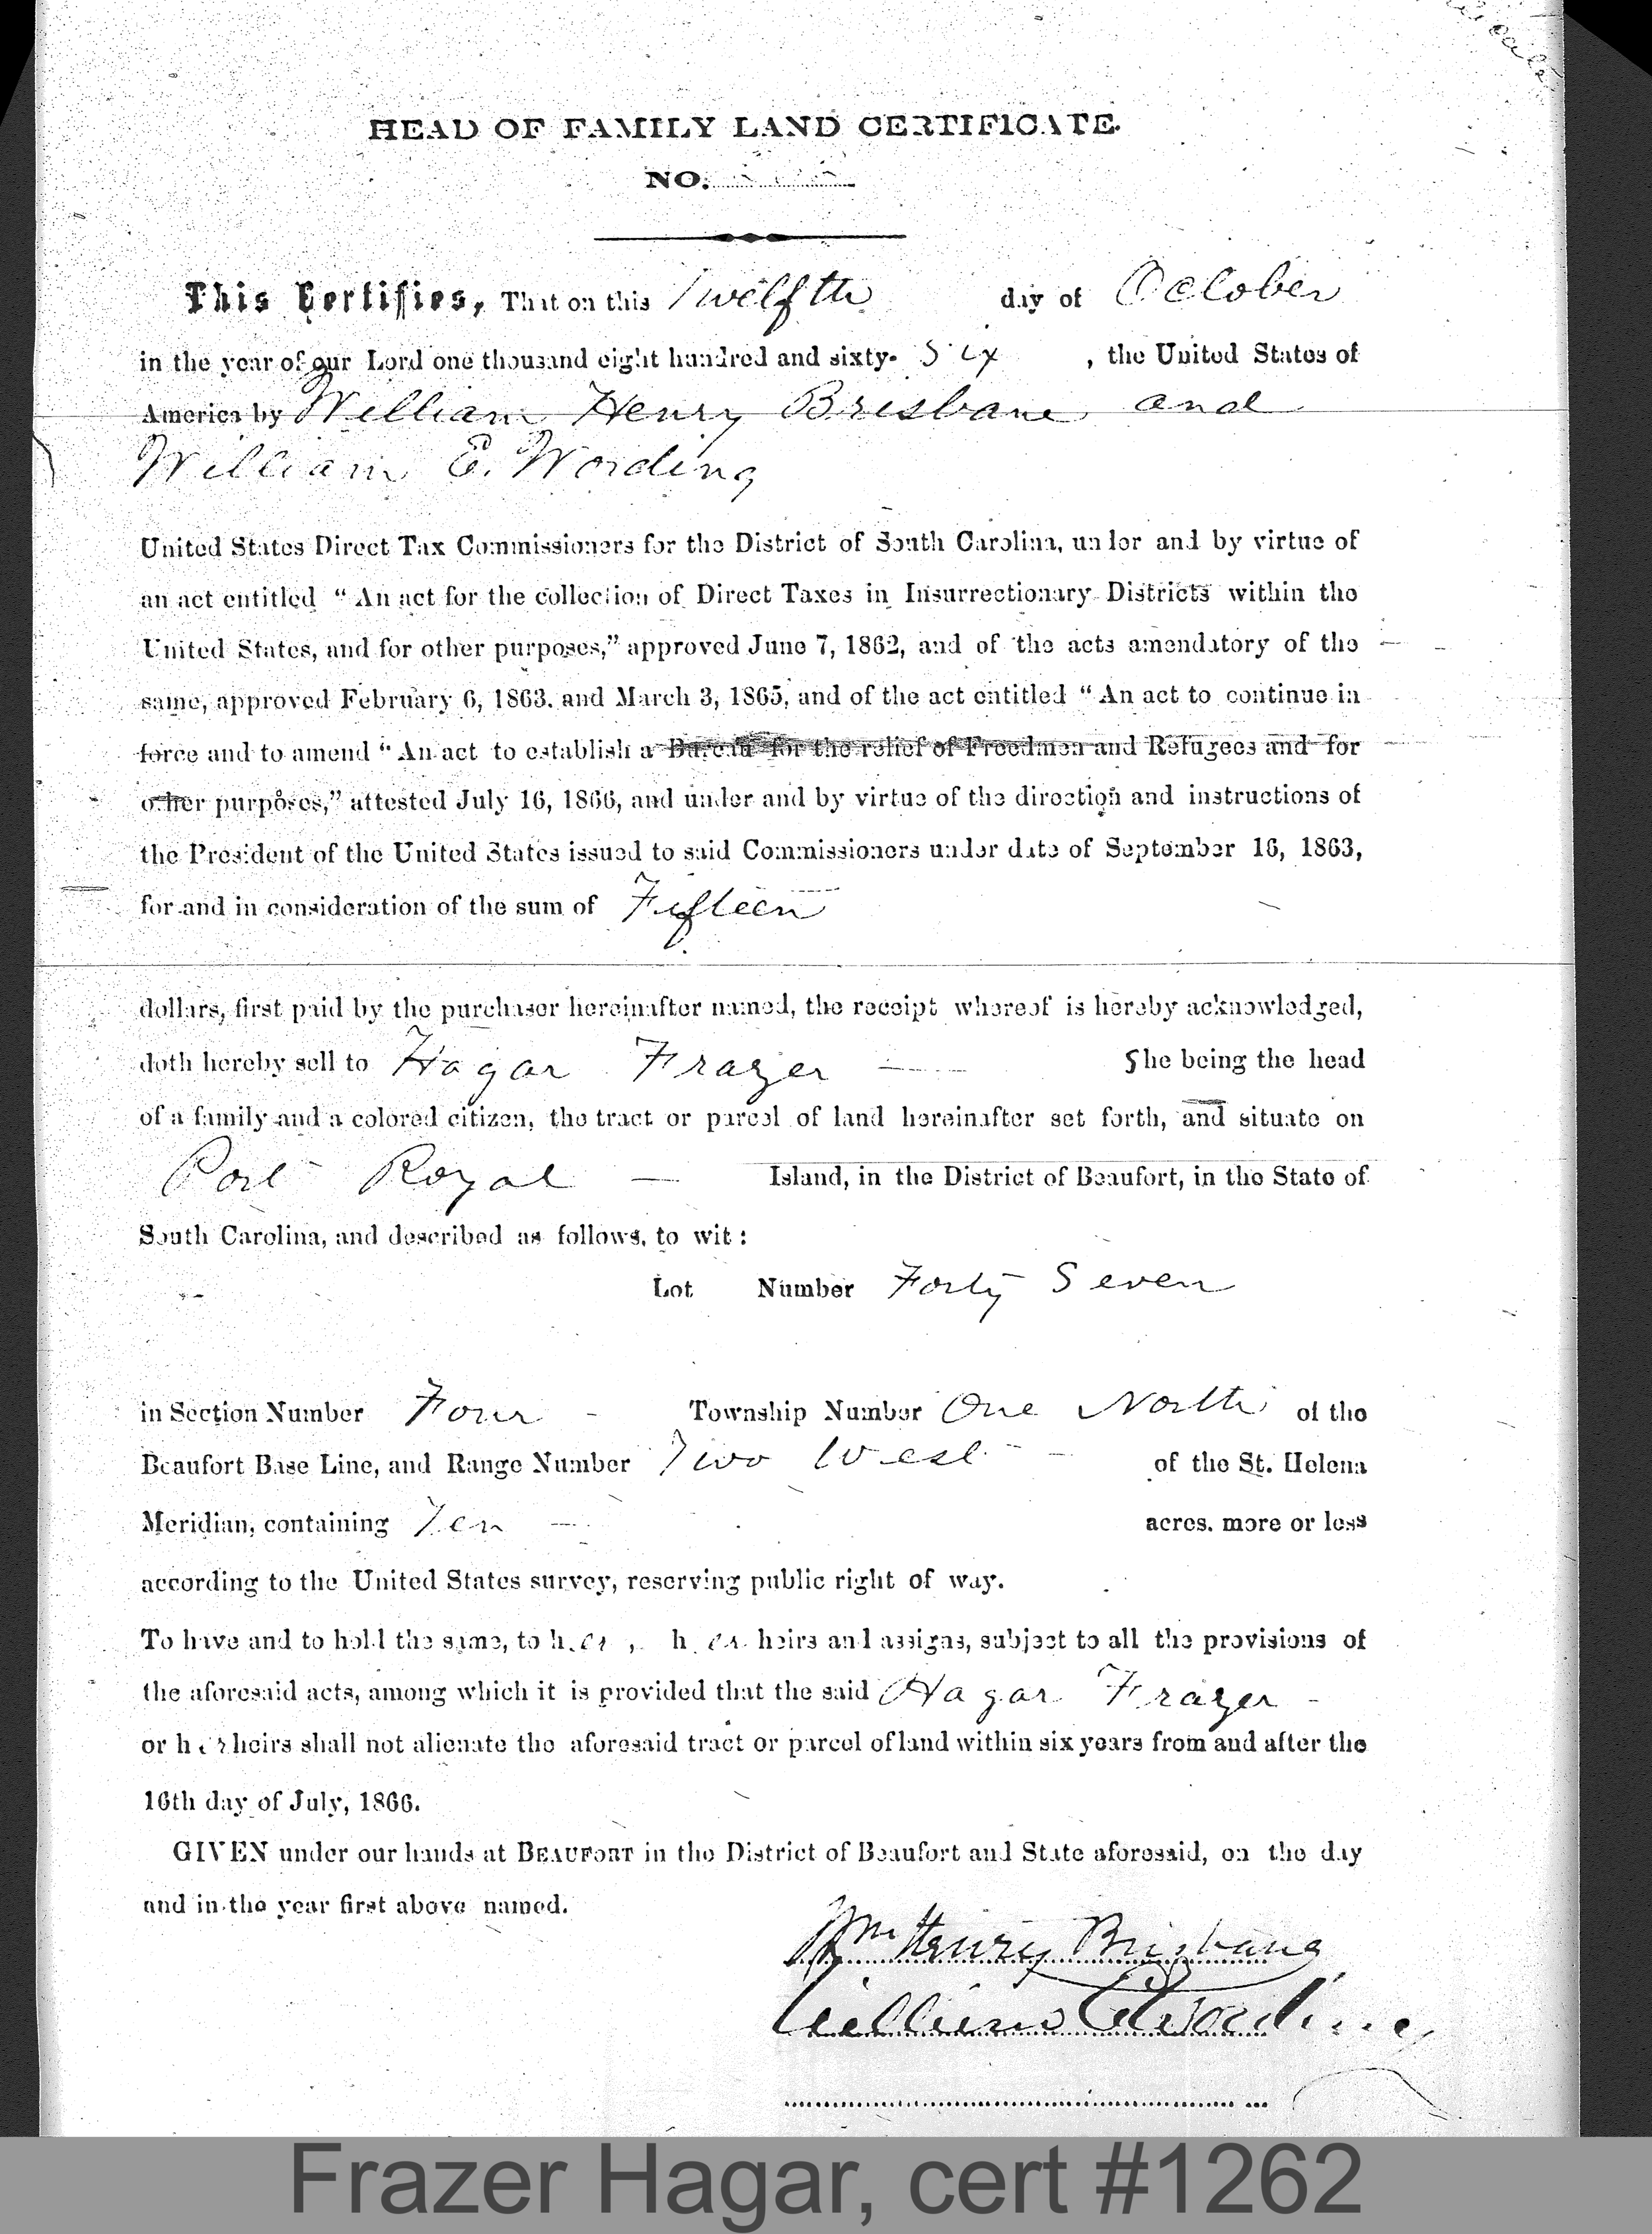 HEAD OF FAMILY LAND CERTIFICATE.
NO.
This Certifies, That on this Twelfth day of October
in the year of our Lord one thousand eight hundred and sixty- Six , the United States of
America by William Henry Brisbane and
William E. Wording
United States Direct Tax Commissioners for the District of South Carolina, under and by virtue of
an act entitled “An act for the collection of Direct Taxes in Insurrectionary Districts within the
United States, and for other purposes,” approved June 7, 1862, and of the acts amendatory of the
same, approved February 6, 1863, and March 3, 1865, and of the act entitled “An act to continue in
force and to amend “An act to establish a Bureau for the relief of Freedmen and Refugees and for
other purposes,” attested July 16, 1866, and under and by virtue of the direction and instructions of
the President of the United States issued to said Commissioners under date of September 16, 1863,
for and in consideration of the sum of Fifteen
dollars, first paid by the purchaser hereinafter named, the receipt whereof is hereby acknowledged,
doth hereby sell to Hagar Frazer — She being the head
of a family and a colored citizen, the tract or parcel of land hereinafter set forth, and situate on
Port Royal — Island, in the District of Beaufort, in the State of
South Carolina, and described as follows, to wit:
Lot Number Forty Seven
in Section Number Four - Township Number One North of the
Beaufort Base Line, and Range Number Two West - of the St. Helena
Meridian, containing Ten — acres, more or less
according to the United States survey, reserving public right of way.
To have and to hold the same, to her, her heirs and assigns, subject to all the provisions of
the aforesaid acts, among which it is provided that the said Hagar Frazer -
or her heirs shall not alienate the aforesaid tract or parcel of land within six years from and after the
16th day of July, 1866.
GIVEN under our hands at BEAUFORT in the District of Beaufort and State aforesaid, on the day
and in the year first above named.
Wm Henry Brisbane
William E Wording
Frazer Hagar, cert #1262